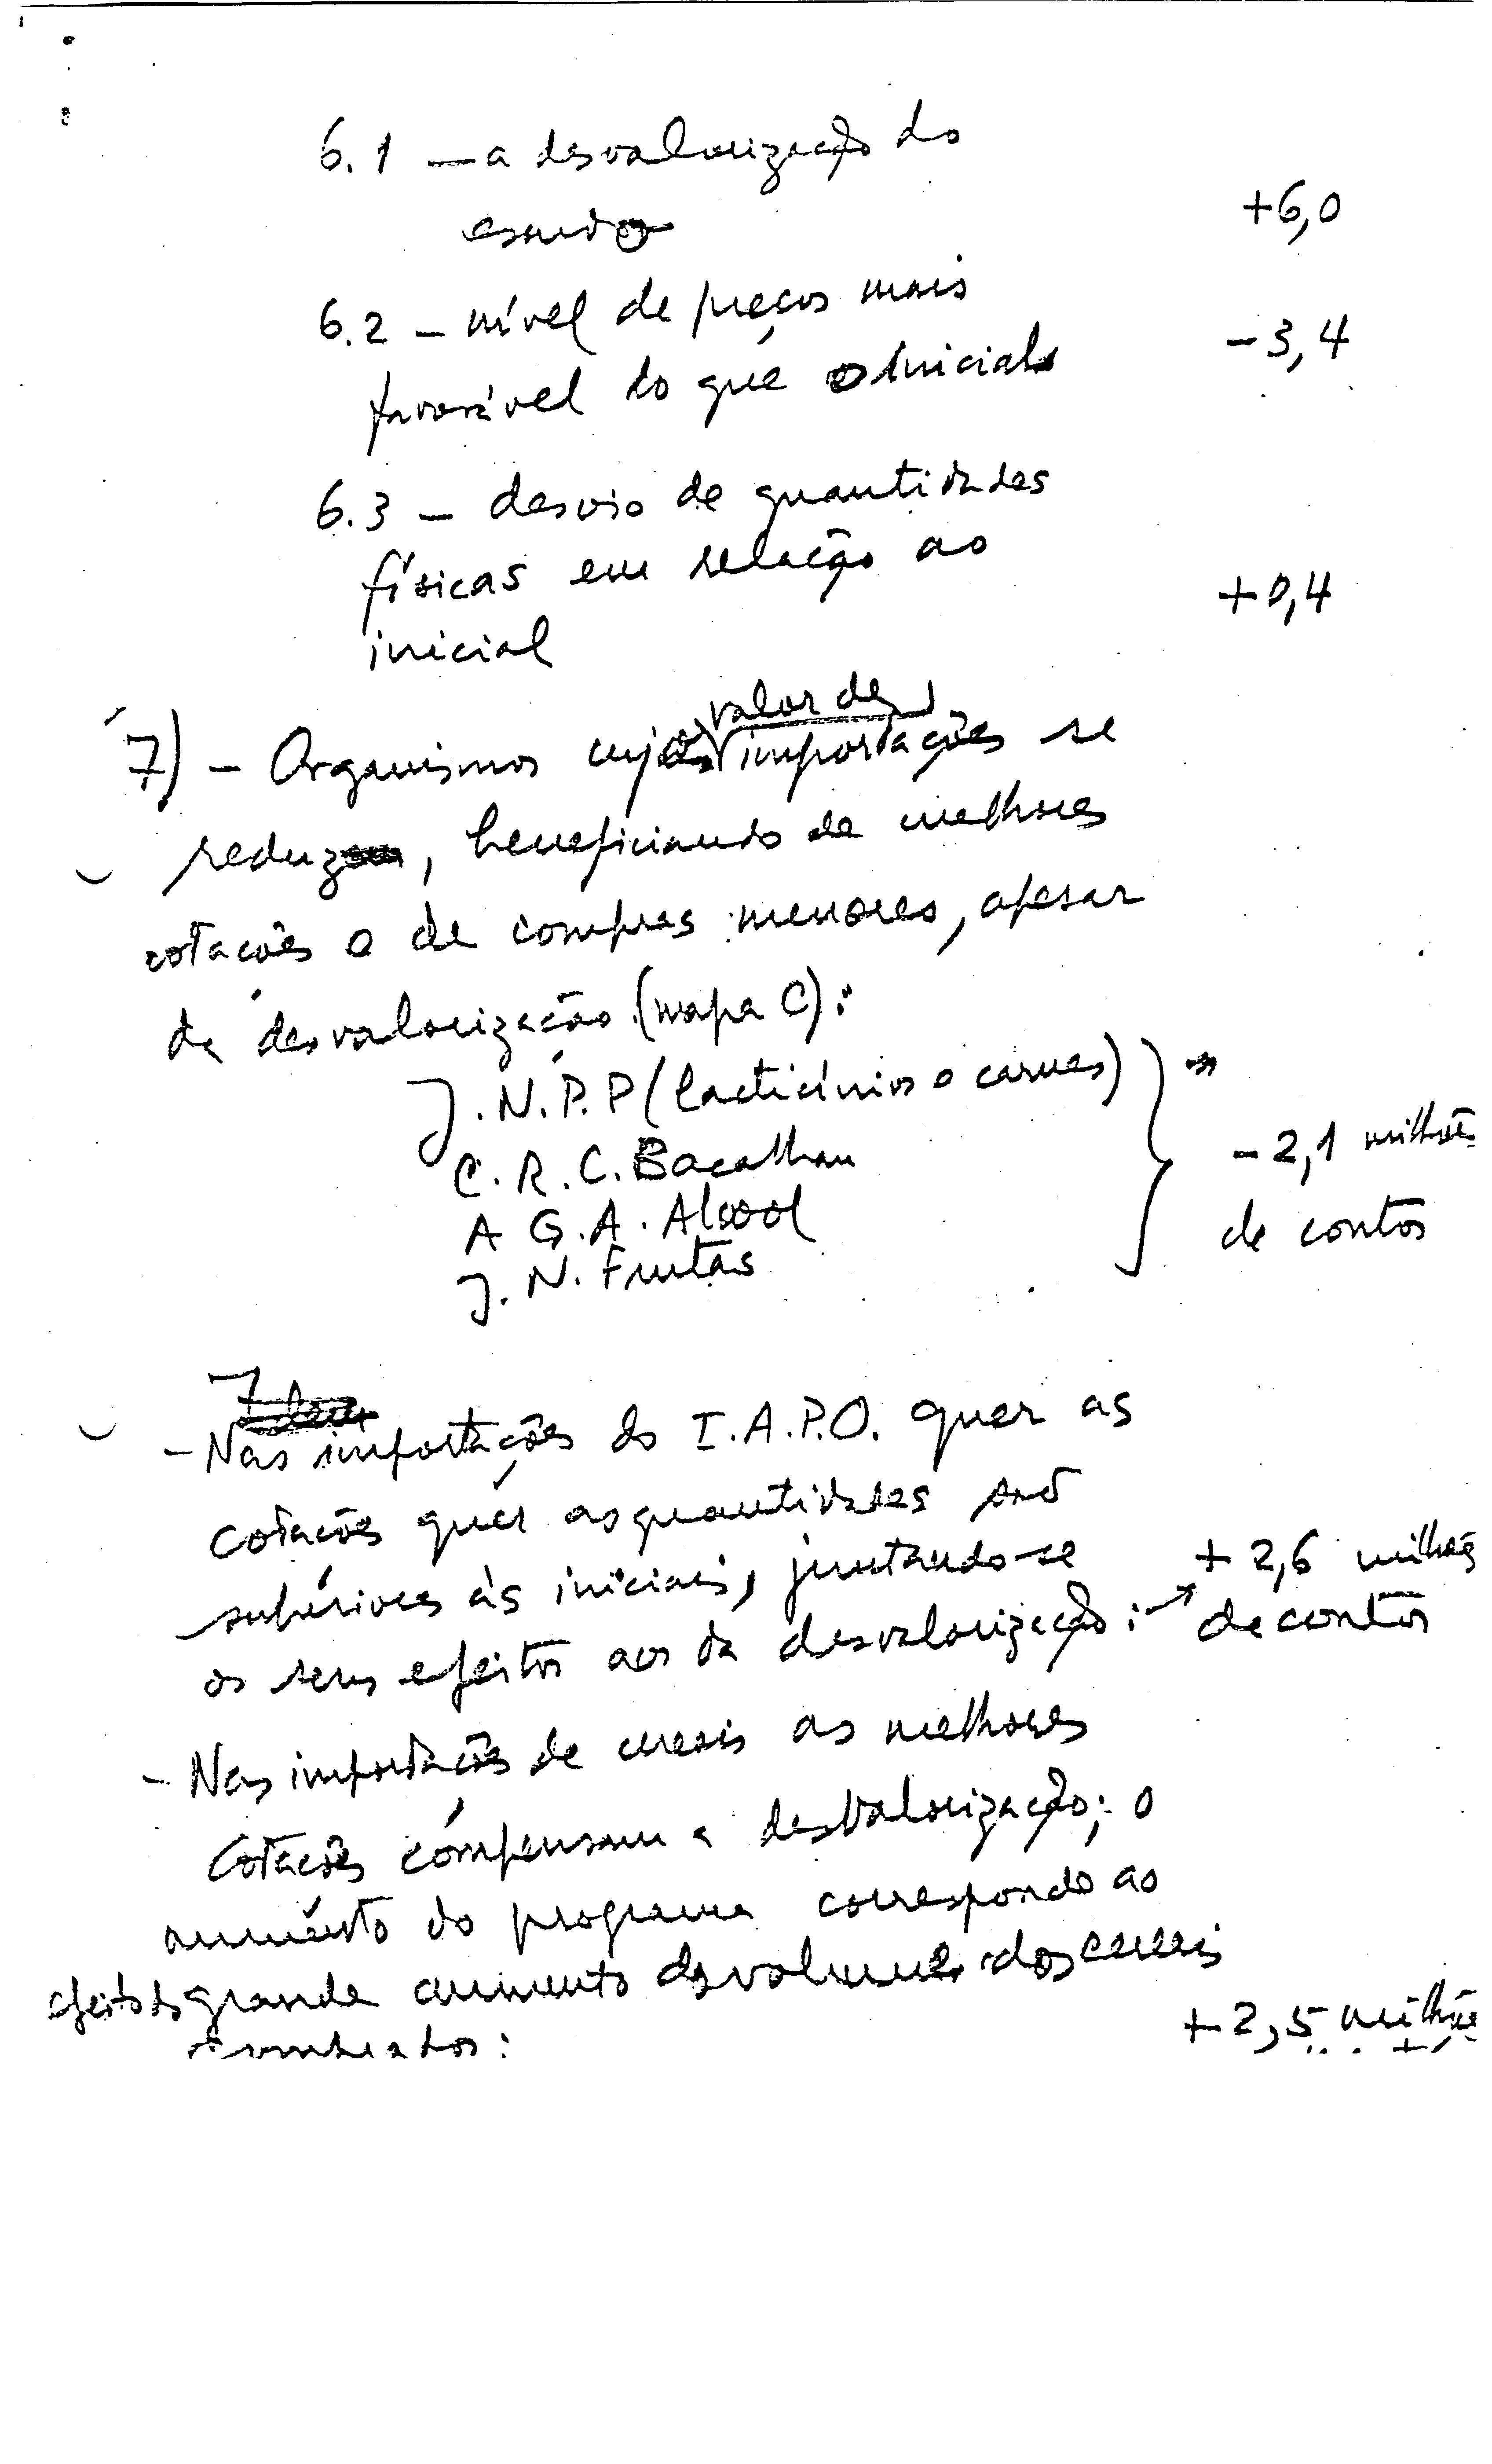 6.1 — a desvalorização do
escudo +6,0
6.2 – nível de preços mais
favorável do que o inicial -3,4
6.3 – desvio de quantidades
físicas em relação ao
inicial +0,4
valor de
7) – Organismos cujo importações se
reduz, beneficiando de melhores
cotações e de compras menores, apesar
da desvalorização (mapa C):
J.N.P.P (lacticínios e carnes) →
C.R.C. Bacalhau - 2,1 milhões
A G.A. Alcool de contos
J.N. Frutas
– Nas importações do I.A.P.O. quer as
cotações quer as quantidades são
superiores às iniciais, juntando-se + 2,6 milhões
os seus efeitos aos da desvalorização: → de contos
– Nas importações de cereais as melhores
cotações compensam a desvalorização; o
aumento do programa corresponde ao
efeito do grande aumento do volume dos cereais
+ 2,5 milhões